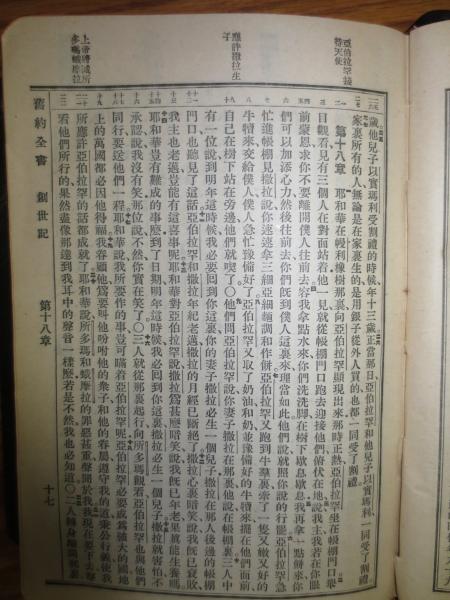 亞伯拉罕接待天使
應許撒拉生子
舊約全書 創世記 第十八章 十七
歲他兒子以實瑪利受割禮的時候年十三歲正當那日亞伯拉罕和他兒子以實瑪利一同受了割禮
家裏所有的人無論是在家裏生的是用銀子從外人買的也都一同受了割禮
第十八章 耶和華在幔利橡樹那裏向亞伯拉罕顯現出來那時正熱亞伯拉罕坐在帳棚門口舉
目觀看見有三個人在對面站着他一見就從帳棚門口跑去迎接他們俯伏在地說我主我若在你眼
前蒙恩求你不要離開僕人往前去容我拿點水來你們洗洗脚在樹下歇息歇息我再拿一點餅來你
們可以加添心力然後往前去你們旣到僕人這裏來理當如此他們說就照你說的行罷亞伯拉罕急
忙進帳棚見撒拉說你速速拿三細亞細麵調和作餅亞伯拉罕又跑到牛羣裏牽了一隻又嫩又好的
牛犢來交給僕人僕人急忙豫備好了亞伯拉罕又取了奶油和奶並豫備好的牛犢來擺在他們面前
自己在樹下站在旁邊他們就喫了〇他們問亞伯拉罕說你妻子撒拉在那裏他說在帳棚裏三人中
有一位說到明年這時候我必要回到你這裏你的妻子撒拉必生一個兒子撒拉在那人後邊的帳棚
門口也聽見了這話亞伯拉罕和撒拉年紀老邁撒拉的月經已斷絕了撒拉心裏暗笑說我旣已衰敗
我主也老邁豈能有這喜事呢耶和華對亞伯拉罕說撒拉爲甚麽暗笑說我旣已年老果眞能生養嗎
耶和華豈有難成的事麽到了日期明年這時候我必回到你這裏撒拉必生一個兒子撒拉就害怕不
承認說我沒有笑那位說不然你實在笑了〇三人就從那裏起行向所多瑪觀看亞伯拉罕也與他們
同行要送他們一程耶和華說我所要作的事豈可瞞着亞伯拉罕呢亞伯拉罕必要成爲强大的國地
上的萬國都必因他得福我眷顧他爲要叫他吩咐他的衆子和他的眷屬遵守我的道秉公行義使我
所應許亞伯拉罕的話都成就了耶和華說所多瑪和蛾摩拉的罪惡甚重聲聞於我我現在要下去察
看他們所行的果然盡像那達到我耳中的聲音一樣麽若是不然我也必知道〇